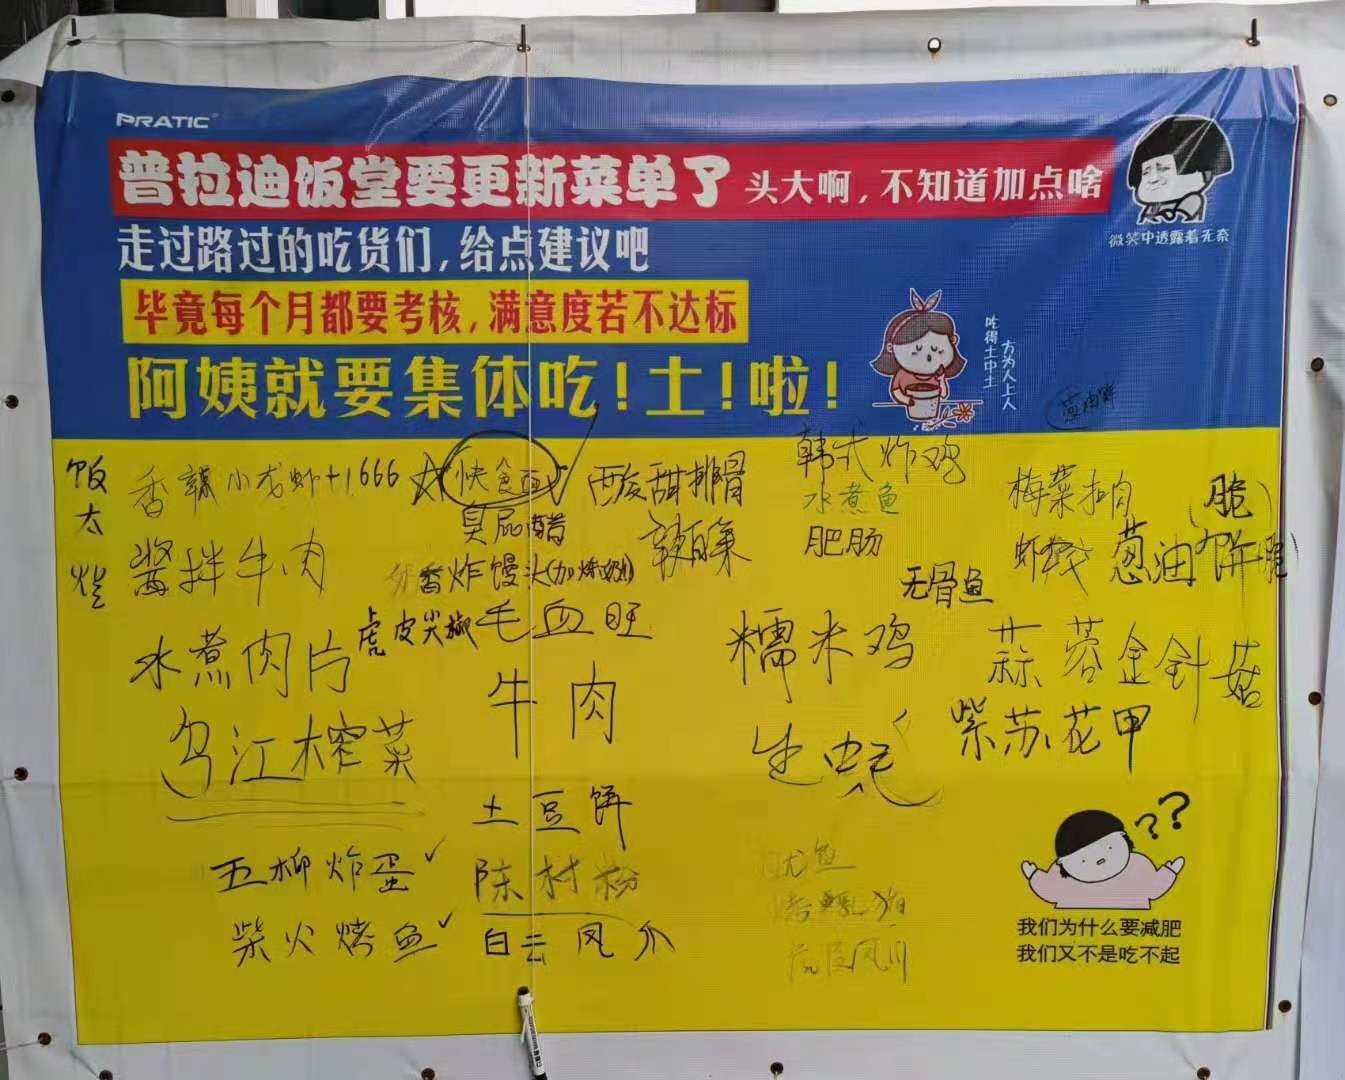 PRATIC
普拉迪饭堂要更新菜单了 头大啊,不知道加点啥
微笑中透露着无奈
走过路过的吃货们,给点建议吧
毕竟每个月都要考核,满意度若不达标
阿姨就要集体吃!土!啦!
吃得土中土
方为人上人
葱油饼
饭太烂
香辣小龙虾+1 666
快食面
酸甜排骨
韩式炸鸡
水煮鱼
肥肠
梅菜扣肉
(脆)
臭屁醋
酱拌牛肉
香炸馒头(加炼奶)
虾饺
葱油饼
无骨鱼
水煮肉片
虎皮尖椒
毛血旺
糯米鸡
蒜蓉金针菇
牛肉
乌江榨菜
生蚝
紫苏花甲
土豆饼
??
五柳炸蛋
陈村粉
鱼
柴火烤鱼
白云凤爪
我们为什么要减肥
我们又不是吃不起